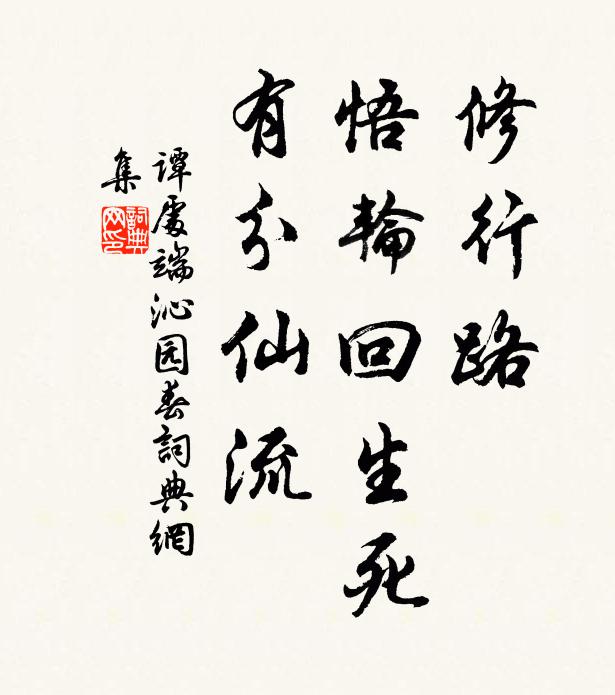 修行路
悟輪回生死
有分仙流
譚處端沁园春詞典網
集
詞典
网印